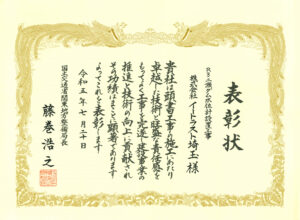 表彰状
R3三瀬ダム水位計設置工事
株式会社イートラスト埼玉様
貴社は頭書工事の施工にあたり
卓越した技術と旺盛な責任感を
もってよく工事を完遂し建設事業の
推進と技術の向上に貢献され
その功績はまことに顕著であります
よってこれを表彰します
令和五年七月二十日
国土交通省関東地方整備局長
藤巻浩之